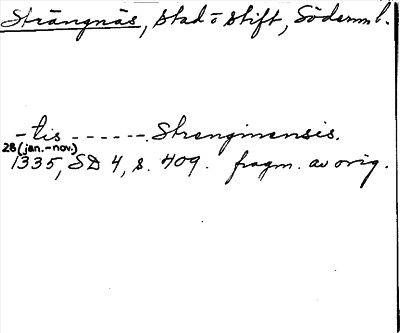 Strängnäs, stad o stift, Söderml.
-tis ------ Strenginensis.
28 (jan.-nov.)
1335, SD 4, s. 409. fragm. av orig.